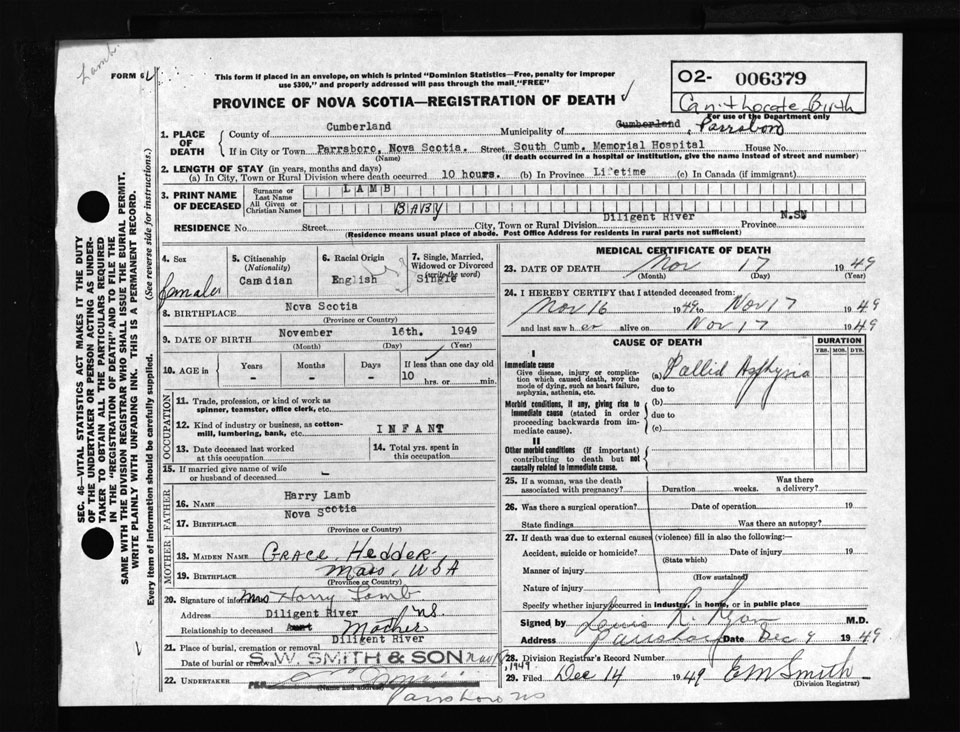 Lamb
FORM 6
This form if placed in an envelope, on which is printed "Dominion Statistics—Free, penalty for improper
use $300," and properly addressed will pass through the mail "FREE"
PROVINCE OF NOVA SCOTIA—REGISTRATION OF DEATH ✓
02- 006379
Can. thorate Birth
For use of the Department only
1. PLACE OF DEATH
County of Cumberland Municipality of Cumberland, Parrsboro
If in City or Town Parrsboro, Nova Scotia. Street South Cumb. Memorial Hospital House No.
(Name) (If death occurred in a hospital or institution, give the name instead of street and number)
2. LENGTH OF STAY (in years, months and days)
(a) In City, Town or Rural Division where death occurred 10 hours. (b) In Province Lifetime (c) In Canada (if immigrant)
3. PRINT NAME OF DECEASED
Surname or Last Name LAMB
All Given or Christian Names BABY
Diligent River N.S.
RESIDENCE No. Street City, Town or Rural Division Province
(Residence means usual place of abode. Post Office Address for residents in rural parts not sufficient)
4. Sex
female
5. Citizenship
(Nationality)
Canadian
6. Racial Origin
English
7. Single, Married,
Widowed or Divorced
(write the word)
Single
8. BIRTHPLACE Nova Scotia
(Province or Country)
9. DATE OF BIRTH November 16th. 1949
(Month) (Day) (Year)
10. AGE in
Years Months Days If less than one day old
- - - 10 hrs. or min.
OCCUPATION
11. Trade, profession, or kind of work as
spinner, teamster, office clerk, etc.
12. Kind of industry or business, as cotton-
mill, lumbering, bank, etc. INFANT
13. Date deceased last worked
at this occupation
14. Total yrs. spent in
this occupation
15. If married give name of wife
or husband of deceased -
FATHER
16. NAME Harry Lamb
17. BIRTHPLACE Nova Scotia
(Province or Country)
MOTHER
18. MAIDEN NAME Grace Hedder
19. BIRTHPLACE Mass, USA
(Province or Country)
20. Signature of informant Mrs Harry Lamb
Address Diligent River NS
Relationship to deceased Aunt Mother
21. Place of burial, cremation or removal Diligent River
Date of burial or removal Nov 18, 1949
S. W. SMITH & SON
22. UNDERTAKER PER
(Name and address)
Parrsboro NS
MEDICAL CERTIFICATE OF DEATH
23. DATE OF DEATH Nov 17 1949
(Month) (Day) (Year)
24. I HEREBY CERTIFY that I attended deceased from:
Nov 16 1949 to Nov 17 1949
and last saw her alive on Nov 17 1949
CAUSE OF DEATH
DURATION
YRS. MOS. DYS.
I
Immediate cause
Give disease, injury or complica-
tion which caused death, NOT the
mode of dying, such as heart failure,
asphyxia, asthenia, etc.
(a) Pallid Asphyxia
due to
Morbid conditions, if any, giving rise to
immediate cause (stated in order
proceeding backwards from im-
mediate cause).
(b)
due to
(c)
II
Other morbid conditions (if important)
contributing to death but not
causally related to immediate cause.
25. If a woman, was the death
associated with pregnancy? Duration weeks. Was there
a delivery?
26. Was there a surgical operation? Date of operation 19
State findings Was there an autopsy?
27. If death was due to external causes (violence) fill in also the following:—
Accident, suicide or homicide? Date of injury 19
(State which)
Manner of injury
(How sustained)
Nature of injury
Specify whether injury occurred in industry, in home, or in public place
Signed by Louis R. Ryan M.D.
Address Parrsboro Date Dec 9 1949
28. Division Registrar's Record Number
29. Filed Dec 14 1949 EM Smith
(Division Registrar)
SEC. 46—VITAL STATISTICS ACT MAKES IT THE DUTY
OF THE UNDERTAKER OR PERSON ACTING AS UNDER-
TAKER TO OBTAIN ALL THE PARTICULARS REQUIRED
IN THE "REGISTRATION OF DEATH" AND TO FILE THE
SAME WITH THE DIVISION REGISTRAR WHO SHALL ISSUE THE BURIAL PERMIT.
WRITE PLAINLY WITH UNFADING INK. THIS IS A PERMANENT RECORD.
Every item of information should be carefully supplied. (See reverse side for instructions.)